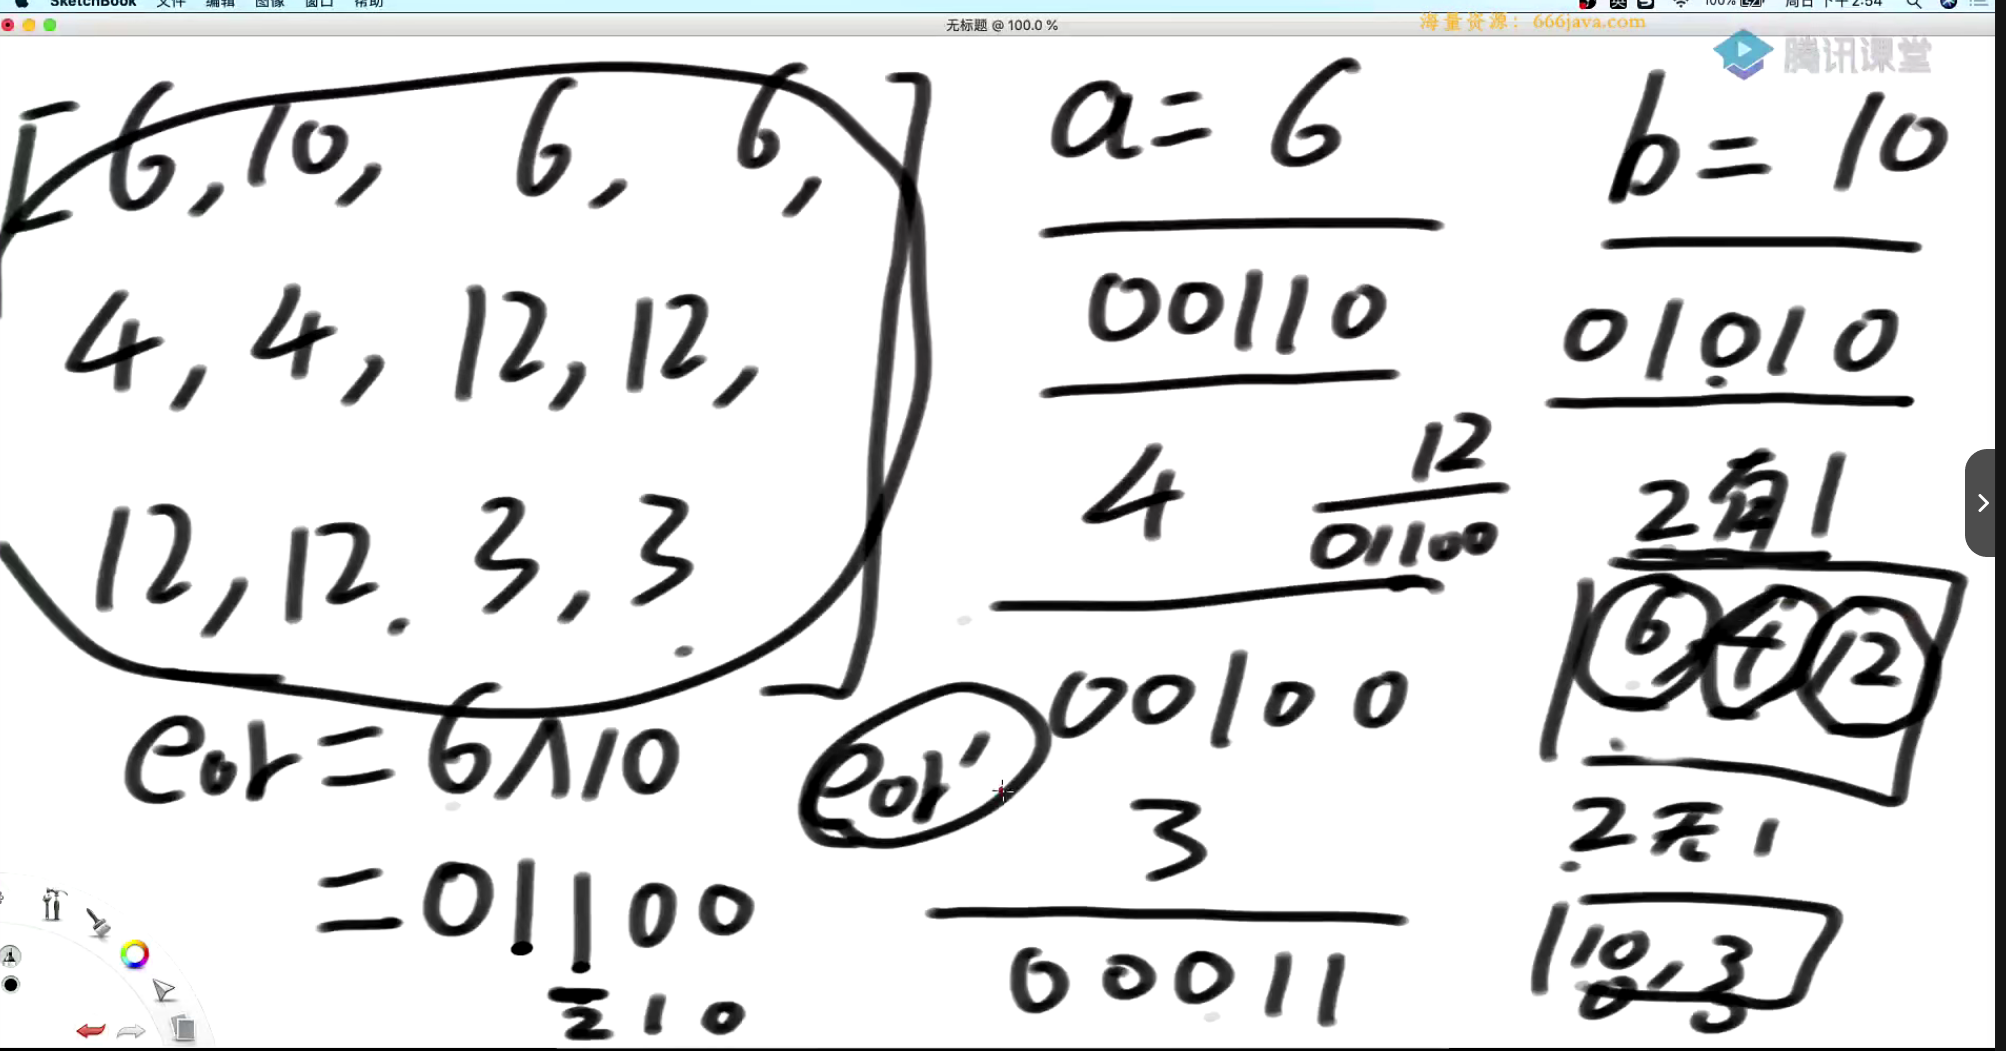 SketchBook 文件 编辑 图像 窗口 帮助 100% 周日 下午2:54
无标题 @ 100.0 %
海量资源：666java.com
腾讯课堂
[6, 10, 6, 6,
4, 4, 12, 12,
12, 12. 3, 3]
eor = 6∧10
= 01100
2 1 0
eor'
a = 6
00110
4
12
01100
00100
3
00011
b = 10
01010
2有1
6, 4 12
2无1
10, 3